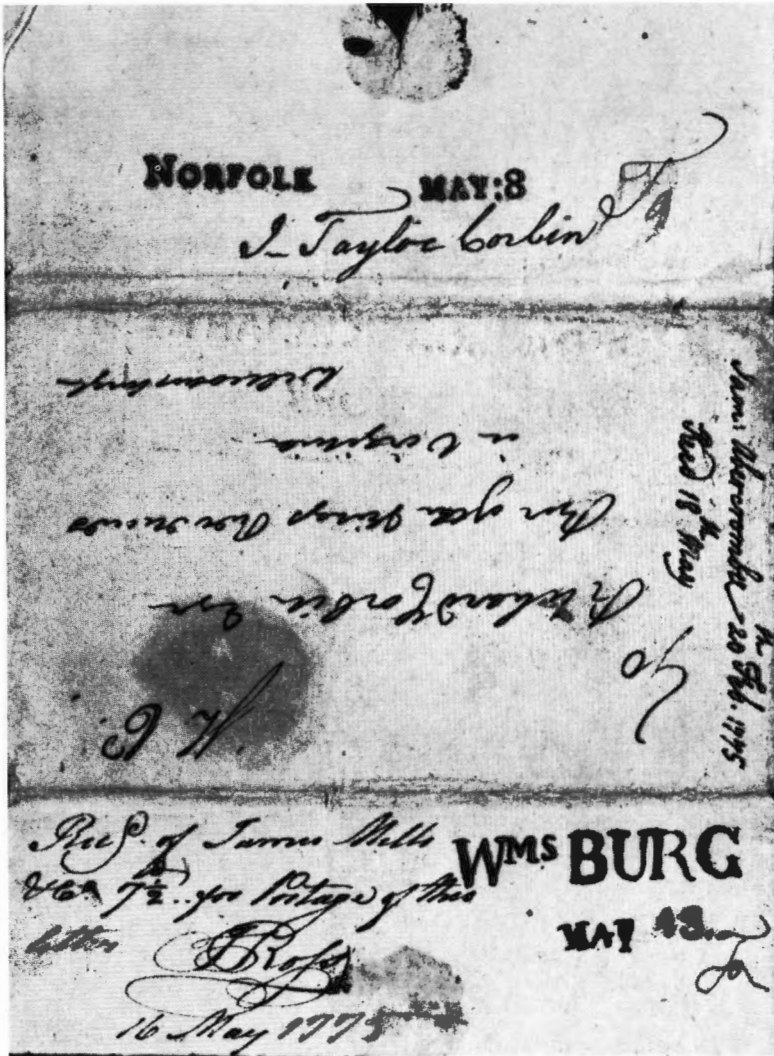 NORFOLK MAY:8
J- Tayloe Corbin
To
Richard Corbin Esqr
his Majs Receiver
in Virginia
Williamsburgh
Sam: Abercrombie 20th Feb. 1775
Recd 18th May
Recd. of James Mills
7½ for Postage of this
letter
Ross
16 May 1775
WMS BURG
MAY 13